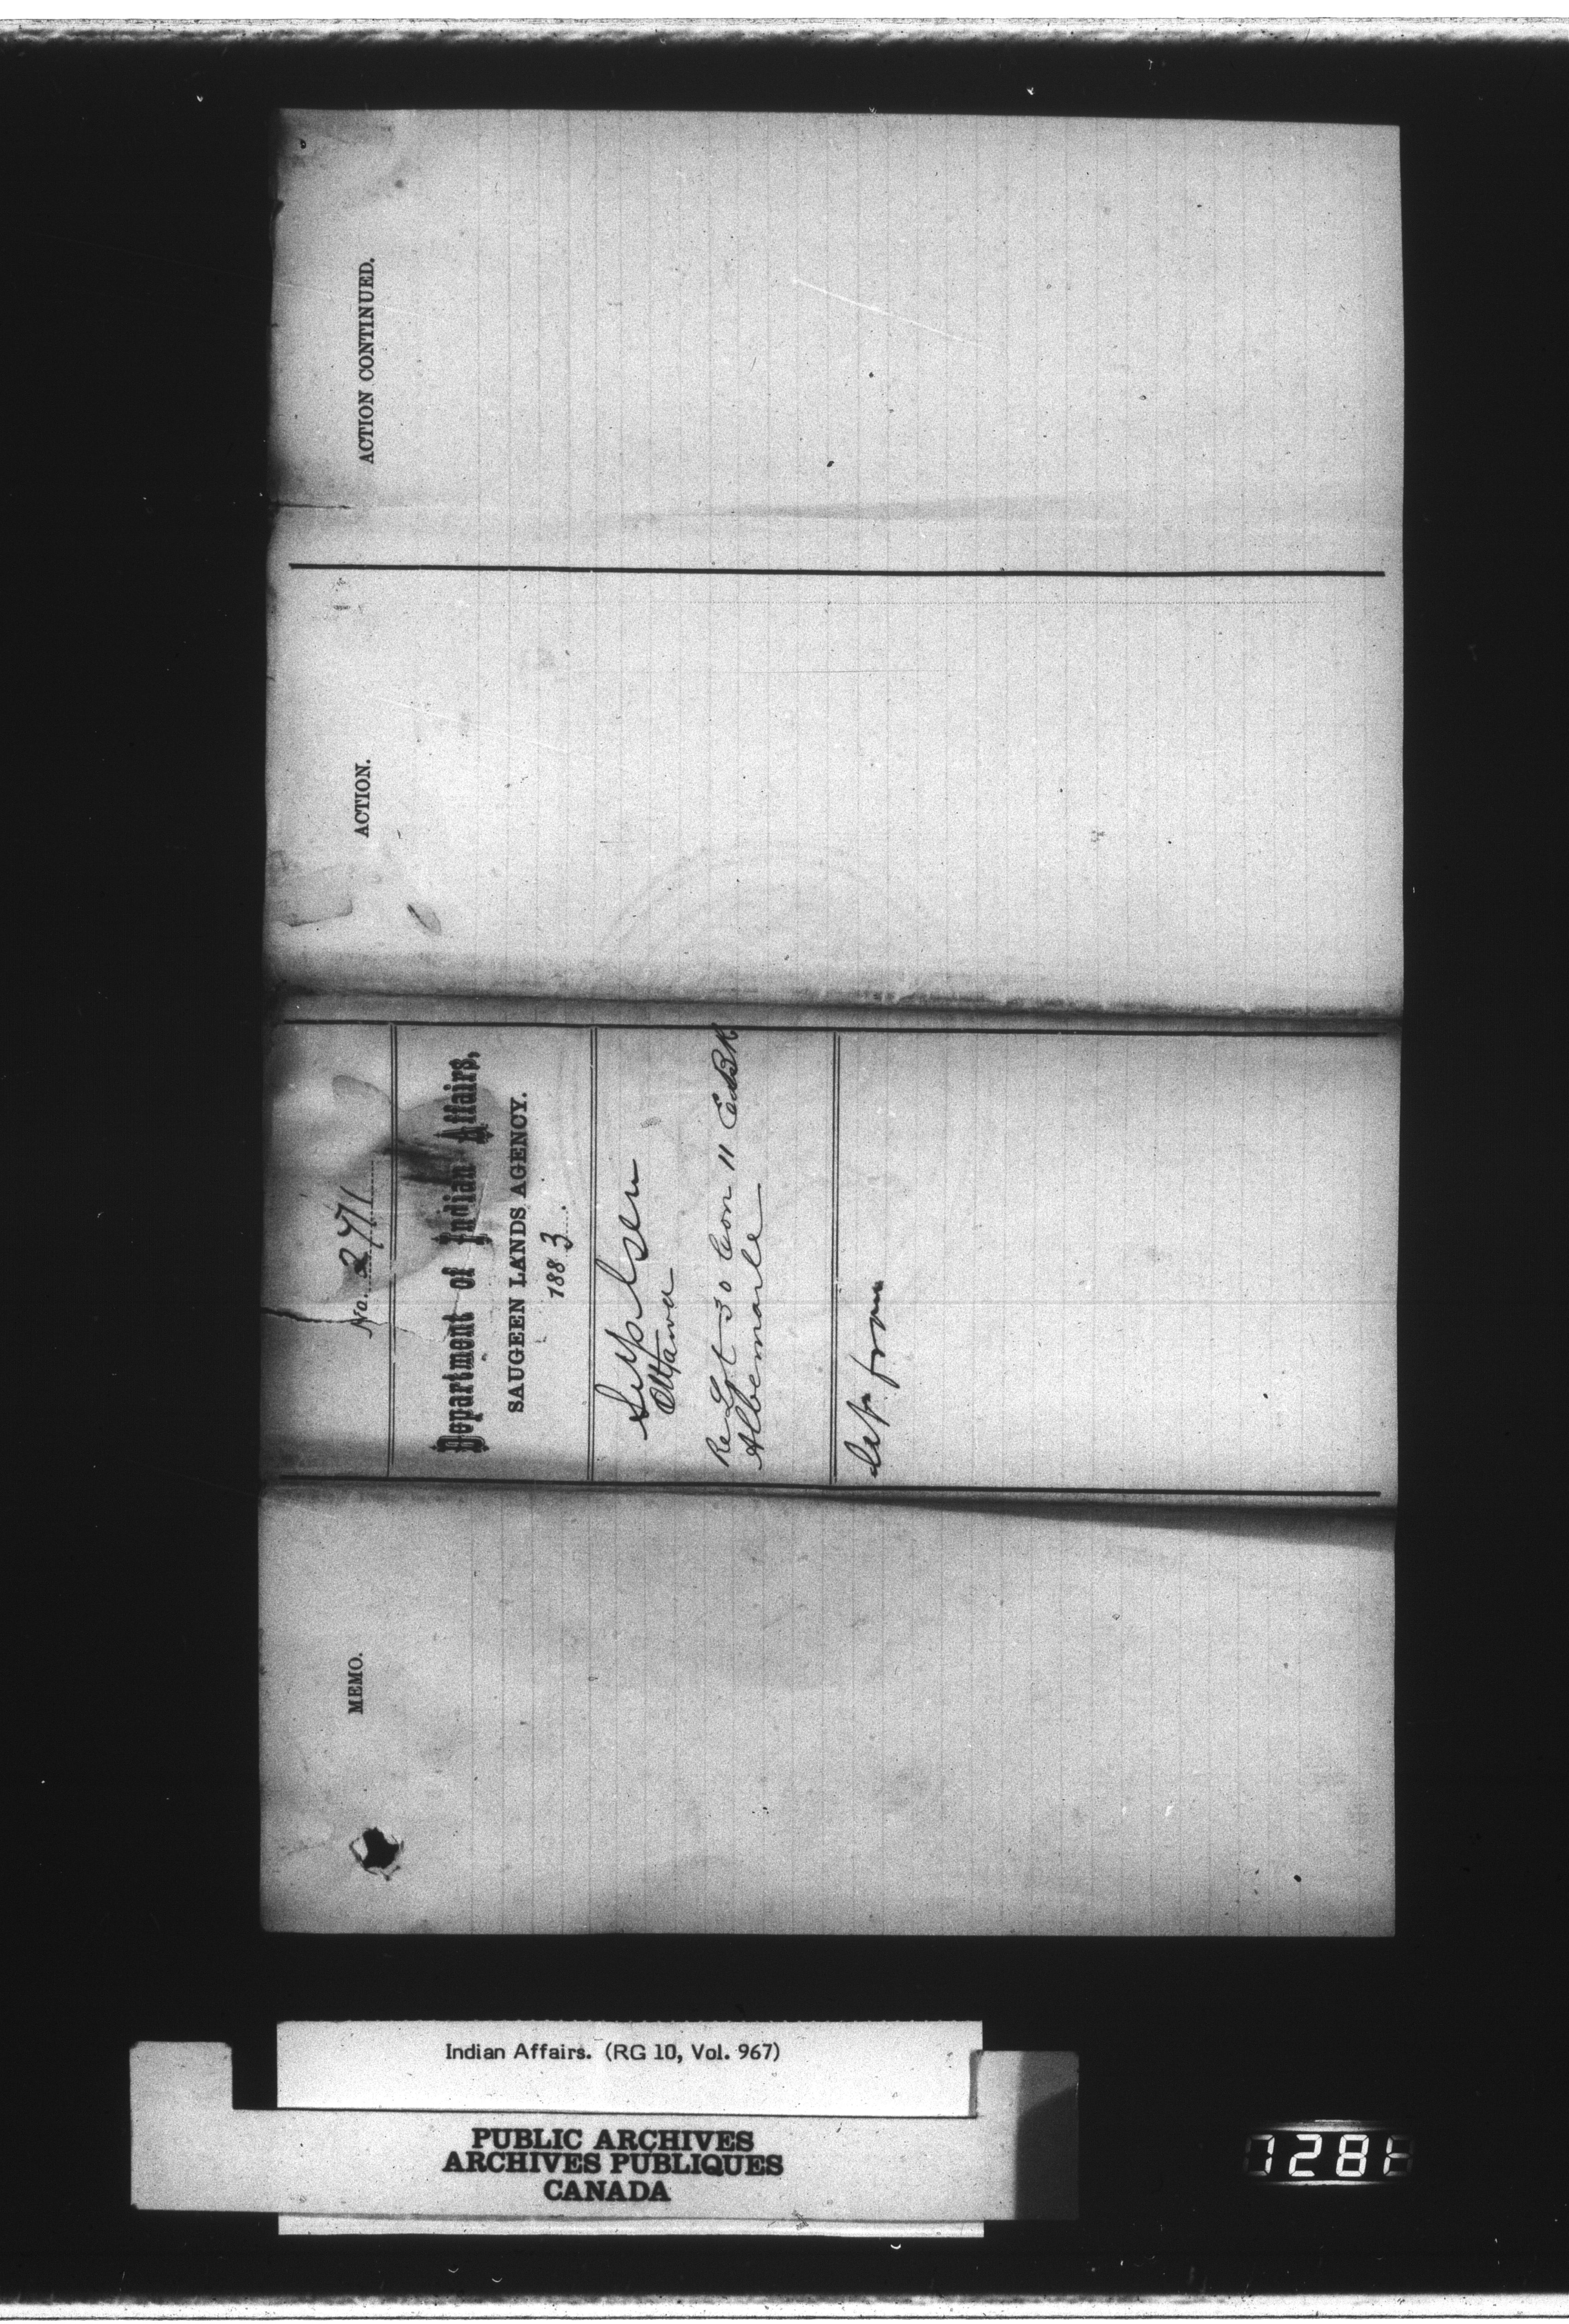 ACTION CONTINUED.
ACTION.
No. 271
Department of Indian Affairs,
SAUGEEN LANDS AGENCY.
1883.
Ottawa
Re Lot 30 Con 11 EBR
Albemarle
Let from
MEMO.
Indian Affairs. (RG 10, Vol. 967)
PUBLIC ARCHIVES
ARCHIVES PUBLIQUES
CANADA